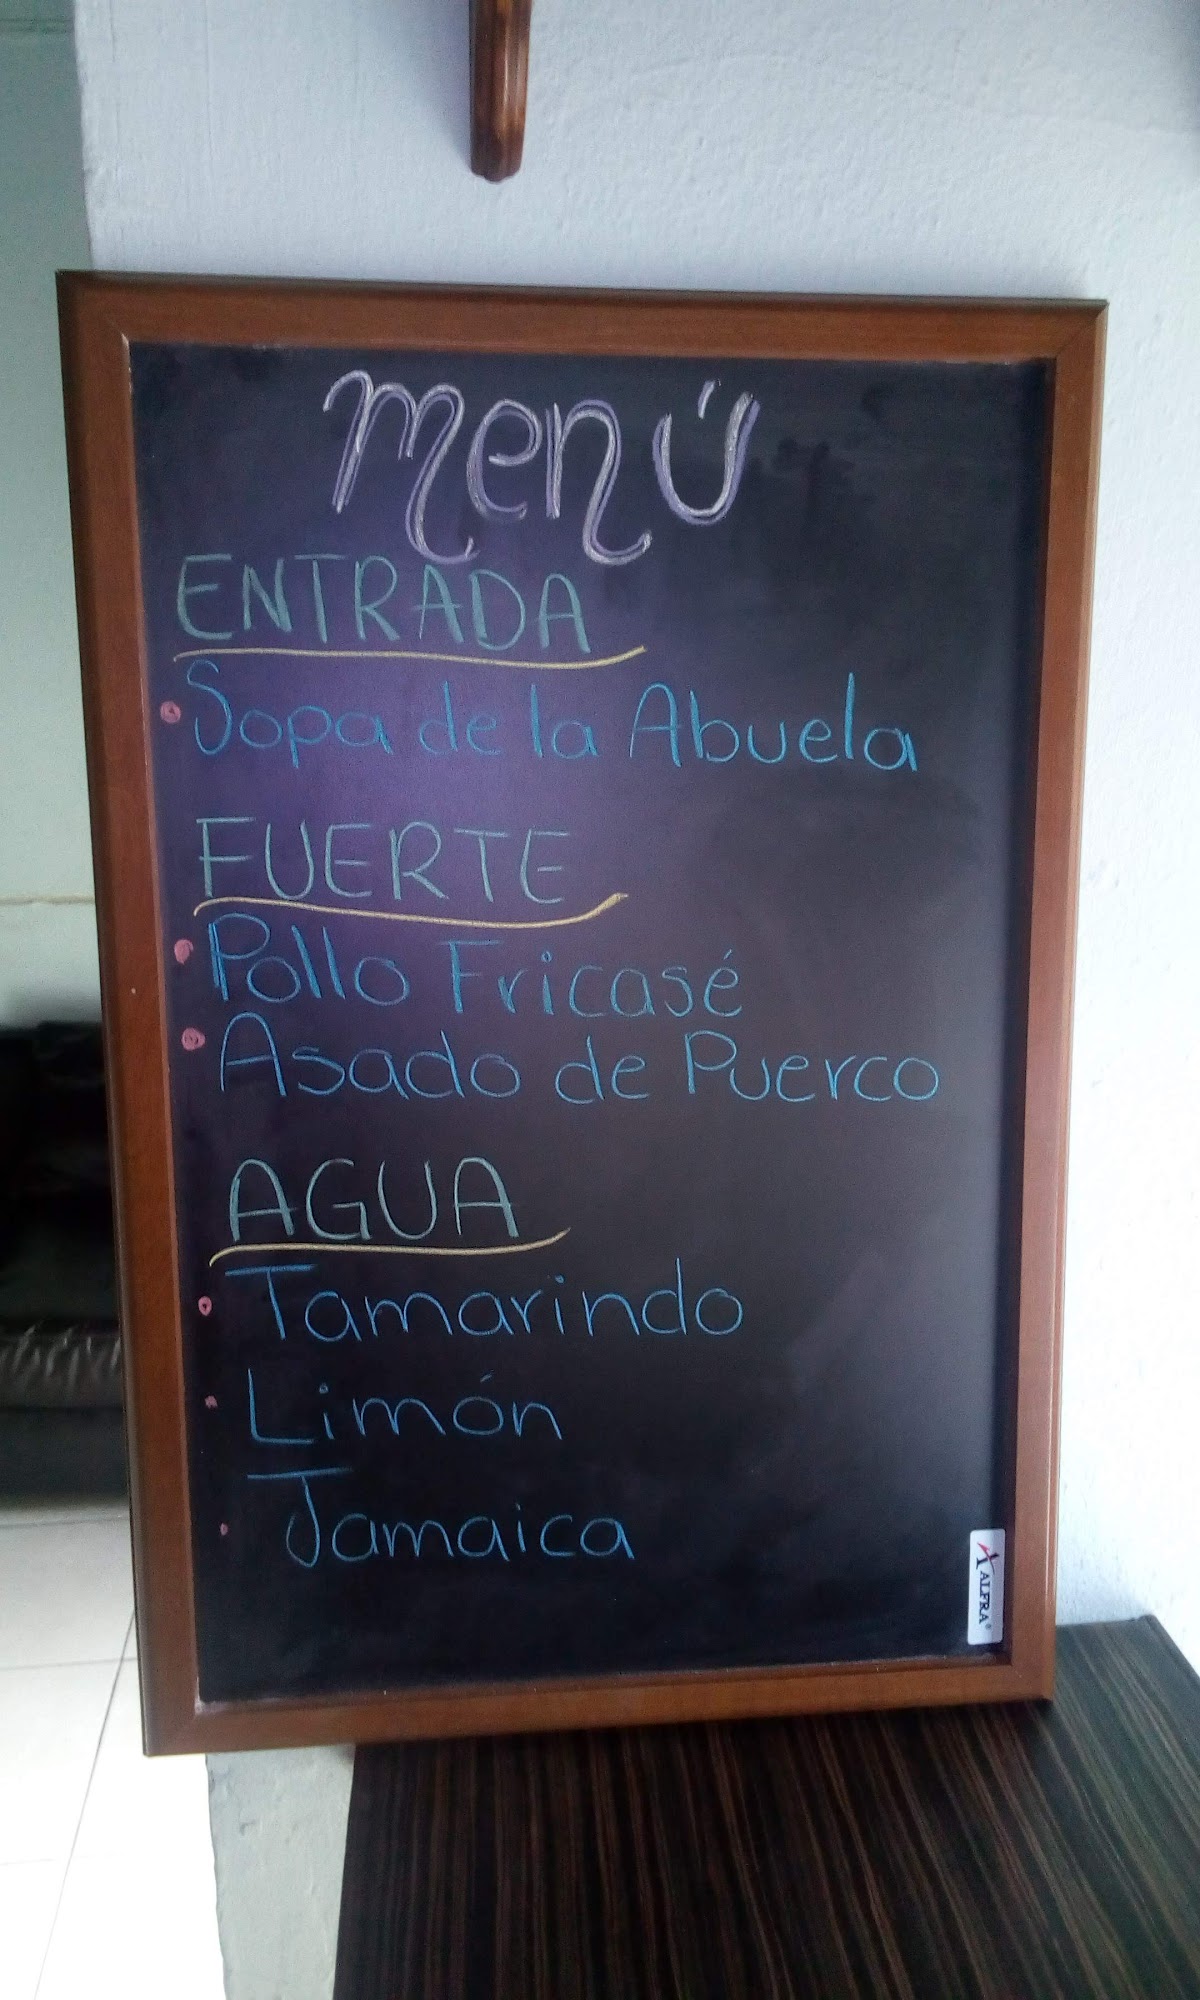 Menú
ENTRADA
Sopa de la Abuela
FUERTE
Pollo Fricasé
Asado de Puerco
AGUA
Tamarindo
Limón
Jamaica
ALFRA®